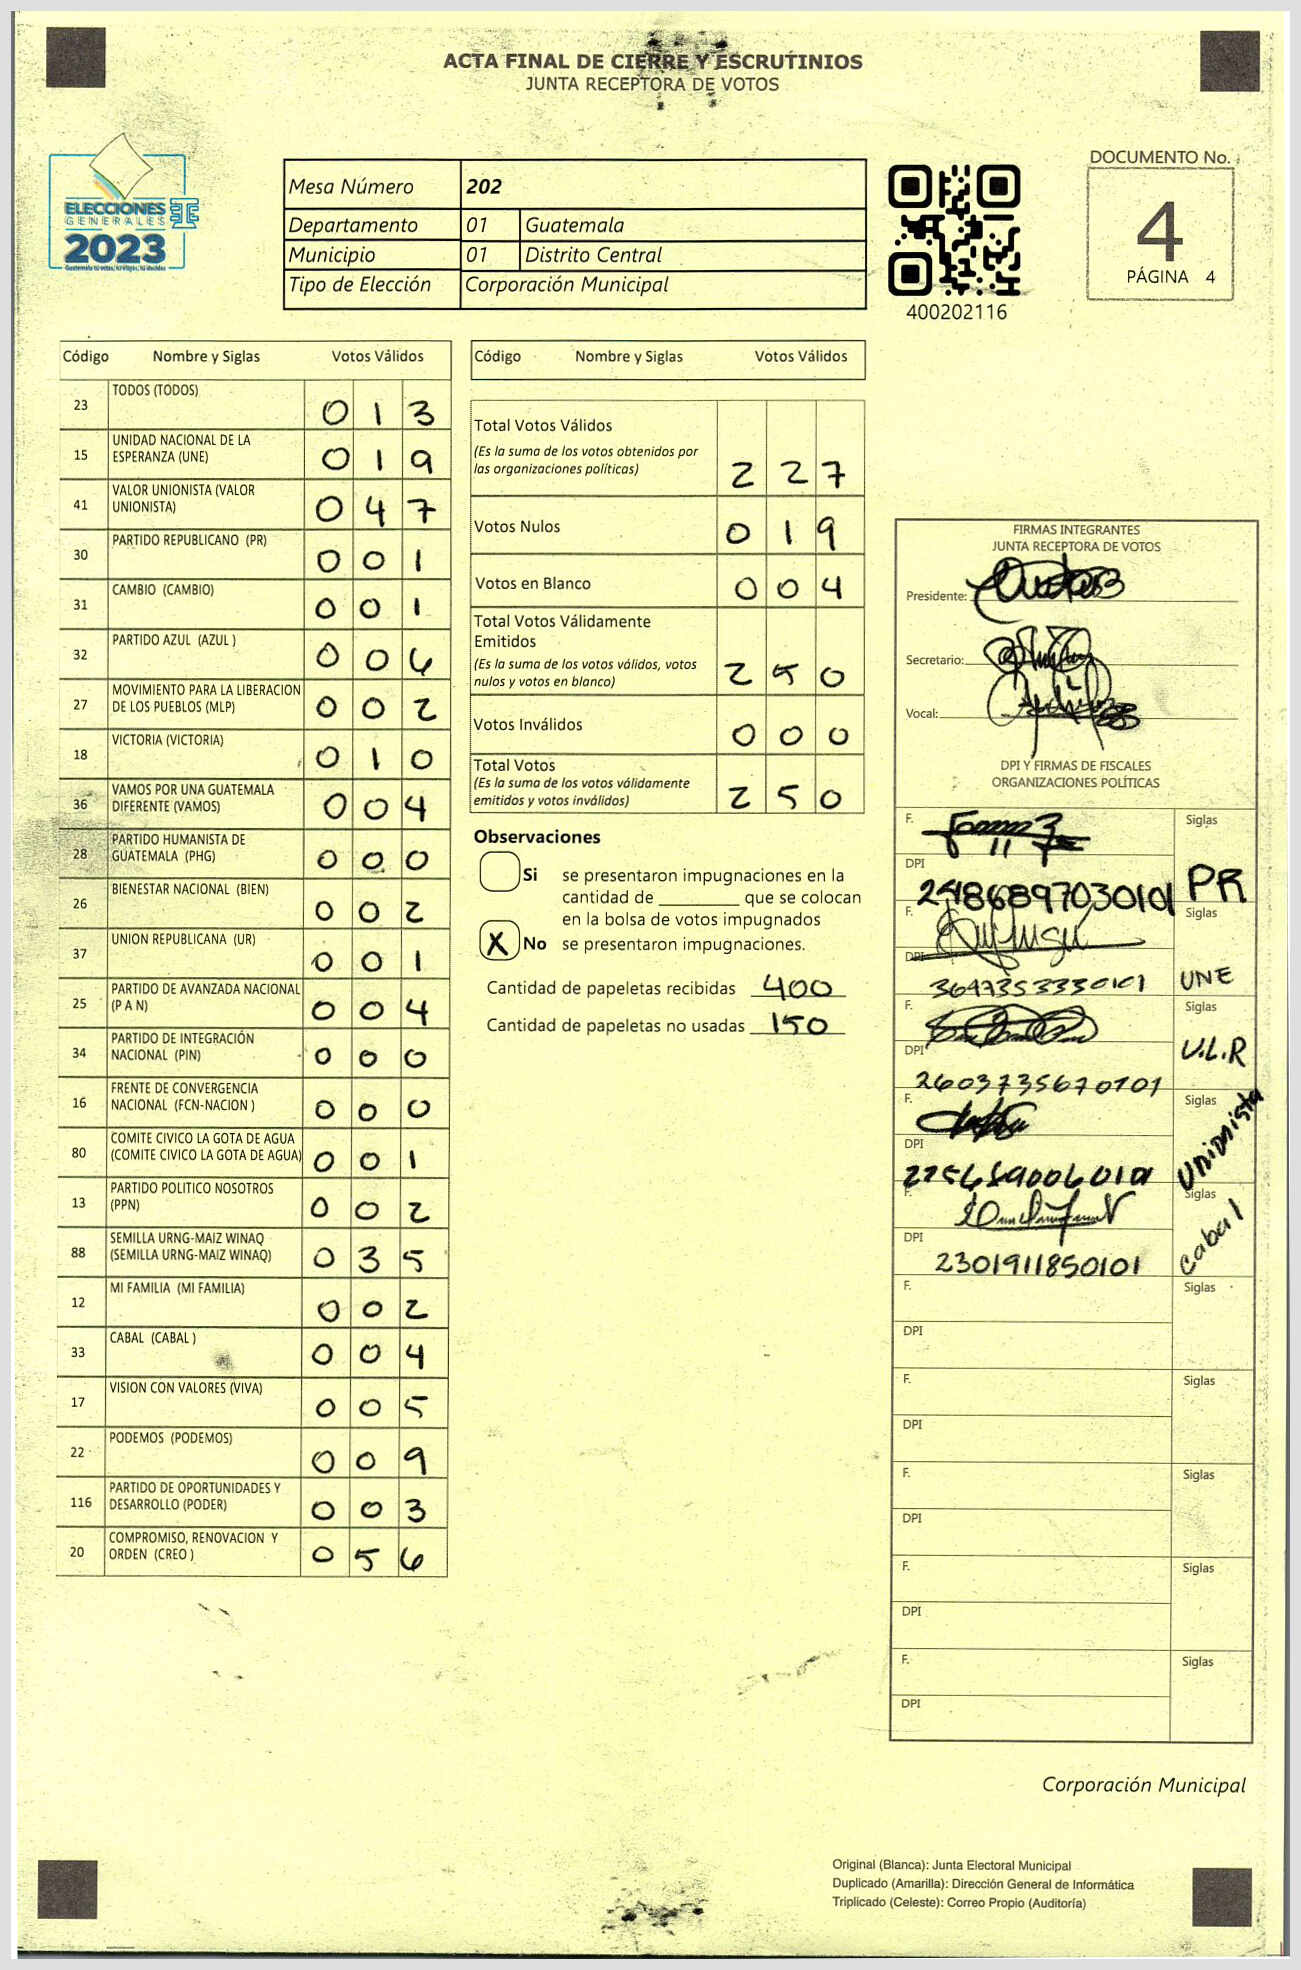 ACTA FINAL DE CIERRE Y ESCRUTINIOS
JUNTA RECEPTORA DE VOTOS
ELECCIONES
GENERALES
2023
Guatemala tú votas, tú eliges, tú decides
Mesa Número 202
Departamento 01 Guatemala
Municipio 01 Distrito Central
Tipo de Elección Corporación Municipal
400202116
DOCUMENTO No.
4
PÁGINA 4
Código Nombre y Siglas Votos Válidos
23 TODOS (TODOS) 0 1 3
15 UNIDAD NACIONAL DE LA
ESPERANZA (UNE) 0 1 9
41 VALOR UNIONISTA (VALOR
UNIONISTA) 0 4 7
30 PARTIDO REPUBLICANO (PR) 0 0 1
31 CAMBIO (CAMBIO) 0 0 1
32 PARTIDO AZUL (AZUL ) 0 0 6
27 MOVIMIENTO PARA LA LIBERACION
DE LOS PUEBLOS (MLP) 0 0 2
18 VICTORIA (VICTORIA) 0 1 0
36 VAMOS POR UNA GUATEMALA
DIFERENTE (VAMOS) 0 0 4
28 PARTIDO HUMANISTA DE
GUATEMALA (PHG) 0 0 0
26 BIENESTAR NACIONAL (BIEN) 0 0 2
37 UNION REPUBLICANA (UR) 0 0 1
25 PARTIDO DE AVANZADA NACIONAL
(P A N) 0 0 4
34 PARTIDO DE INTEGRACIÓN
NACIONAL (PIN) 0 0 0
16 FRENTE DE CONVERGENCIA
NACIONAL (FCN-NACION ) 0 0 0
80 COMITE CIVICO LA GOTA DE AGUA
(COMITE CIVICO LA GOTA DE AGUA) 0 0 1
13 PARTIDO POLITICO NOSOTROS
(PPN) 0 0 2
88 SEMILLA URNG-MAIZ WINAQ
(SEMILLA URNG-MAIZ WINAQ) 0 3 5
12 MI FAMILIA (MI FAMILIA) 0 0 2
33 CABAL (CABAL ) 0 0 4
17 VISION CON VALORES (VIVA) 0 0 5
22 PODEMOS (PODEMOS) 0 0 9
116 PARTIDO DE OPORTUNIDADES Y
DESARROLLO (PODER) 0 0 3
20 COMPROMISO, RENOVACION Y
ORDEN (CREO ) 0 5 6
Código Nombre y Siglas Votos Válidos
Total Votos Válidos
(Es la suma de los votos obtenidos por
las organizaciones políticas) 2 2 7
Votos Nulos 0 1 9
Votos en Blanco 0 0 4
Total Votos Válidamente
Emitidos
(Es la suma de los votos válidos, votos
nulos y votos en blanco) 2 5 0
Votos Inválidos 0 0 0
Total Votos
(Es la suma de los votos válidamente
emitidos y votos inválidos) 2 5 0
Observaciones
Si se presentaron impugnaciones en la
cantidad de ________ que se colocan
en la bolsa de votos impugnados
X No se presentaron impugnaciones.
Cantidad de papeletas recibidas 400
Cantidad de papeletas no usadas 150
FIRMAS INTEGRANTES
JUNTA RECEPTORA DE VOTOS
Presidente:
Secretario:
Vocal:
DPI Y FIRMAS DE FISCALES
ORGANIZACIONES POLÍTICAS
F. Siglas
DPI
2486897030101 PR
F. Siglas
DPI
3647353330101 UNE
F. Siglas
DPI U.L.R
2603735670101
F. Siglas
DPI Unionista
F. Siglas
DPI cabal
2301911850101
F. Siglas
DPI
F. Siglas
DPI
F. Siglas
DPI
F. Siglas
DPI
F. Siglas
DPI
Corporación Municipal
Original (Blanca): Junta Electoral Municipal
Duplicado (Amarilla): Dirección General de Informática
Triplicado (Celeste): Correo Propio (Auditoría)